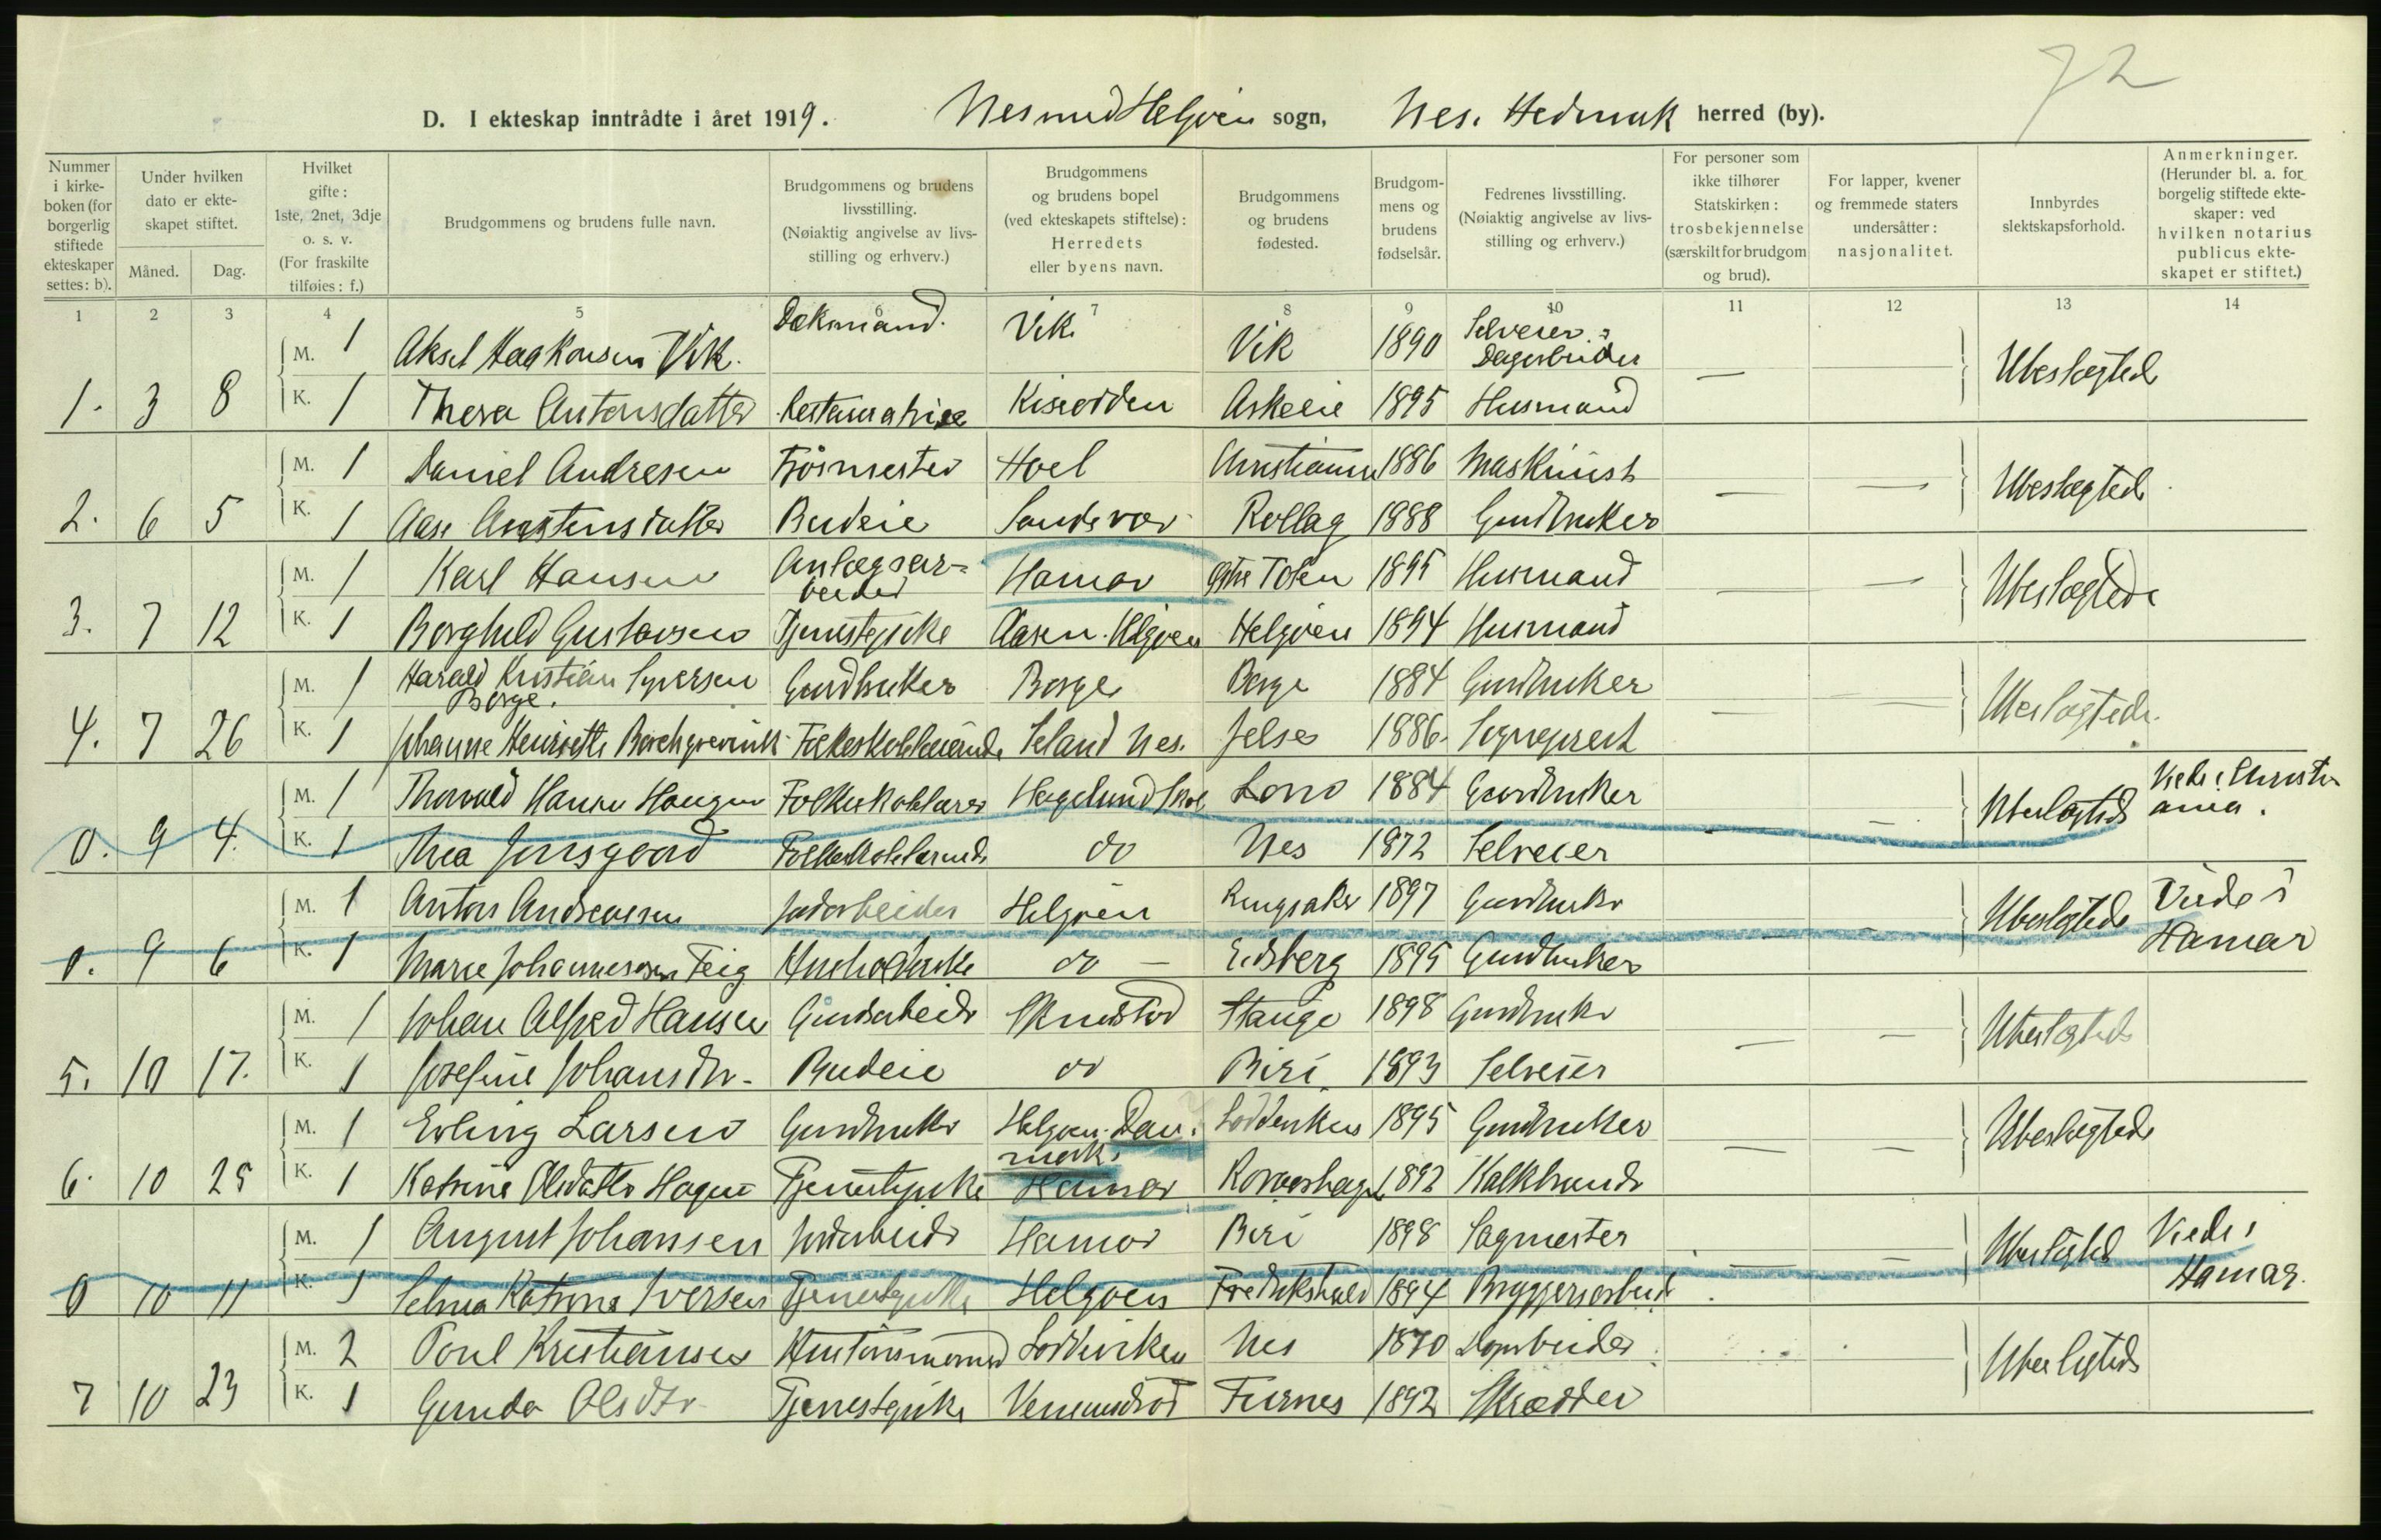 72
D. I ekteskap inntrådte i året 1919. Nes med Helgøen sogn, Nes. Hedmark herred (by).
Nummer i kirkeboken (for borgerlig stiftede ekteskaper settes: b).
Under hvilken dato er ekteskapet stiftet.
Måned. Dag.
Hvilket gifte: 1ste, 2net, 3dje o. s. v. (For fraskilte tilføies: f.)
Brudgommens og brudens fulle navn.
Brudgommens og brudens livsstilling. (Nøiaktig angivelse av livsstilling og erhverv.)
Brudgommens og brudens bopel (ved ekteskapets stiftelse): Herredets eller byens navn.
Brudgommens og brudens fødested.
Brudgommens og brudens fødselsår.
Fedrenes livsstilling. (Nøiaktig angivelse av livsstilling og erhverv.)
For personer som ikke tilhører Statskirken: trosbekjennelse (særskilt for brudgom og brud).
For lapper, kvener og fremmede staters undersåtter: nasjonalitet.
Innbyrdes slektskapsforhold.
Anmerkninger. (Herunder bl. a. for borgelig stiftede ekteskaper: ved hvilken notarius publicus ekteskapet er stiftet.)
1 2 3 4 5 6 7 8 9 10 11 12 13 14
M. 1 Aksel Haakonsen Vik. Dekmand. Vik. Vik 1890 Selveier Ubeslegted
1. 3 8 K. 1 Thera Antonsdatter Restauratrise Kiseodden Askeeie 1895 Husmand
M. 1 Daniel Andresen Fjøsmester Hoel Christiania 1886 Maskinist — — Ubeslegted
2. 6 5 K. 1 Aase Budeie Sandsvær Rollag 1888 Gardbruker
M. 1 Karl Hansen Anlægsar=beider Hamar Østre Toten 1895 Husmand — — Ubeslegtede
3. 7 12 K. 1 Borghild Gustavsen Tjenestepike Aasen. Helgøen Helgøen 1894 Husmand
M. 1 Harald Kristian Syversen Borge. Gardbruker Borge Borge 1884 Gardbruker — — Ubeslegtede
4. 7 26 K. 1 Johanne Henriette Borchgrevink Seland Nes. Jelse 1886. Sogneprest
M. 1 Thorvald Hansen Haugen Folkeskolelærer Hagelund skole 1884 Gardbruker — Ubeslegtede Viede i Christiania.
0. 9 4. K. 1 Thea Jensgaard do Nes 1872 Selveier
M. 1 Anton Andreasen Jordarbeider Helgøen Ringsaker 1897 Gardbruker — — Ubeslegtede Viede i Hamar
0. 9 6 K. 1 Marie Johannesen Teig do — Eidsberg 1895 Gardbruker
M. 1 Johan Alfred Hansen Gardsarbeider Skredstad Stange 1898 Gardbruker — — Ubeslegtede
5. 10 17. K. 1 Josefine Johansdtr. Budeie do Biri 1893 Selveier
M. 1 Erling Larsen Gardbruker Helgøen. Danmark. 1895 Gardbruker — — Ubeslegtede
6. 10 25 K. 1 Katrine Olsdatter Hagen Tjenestepike Hamar 1892 Kalkbrender
M. 1 August Johansen Jordarbeider Hamar Biri 1898 Sagmester — — Ubeslegted Viede i Hamar.
0 10 11 K. 1 Selma Katrine Iversen Tjenestepike Helgøen Fredrikshald 1894 Bryggeriarbeid
M. 2 Poul Kristiansen Nes 1870 Ubeslegtede
7 10 23 K. 1 Gunda Olsdtr. Tjenestepike Furnes 1892 Skrædder